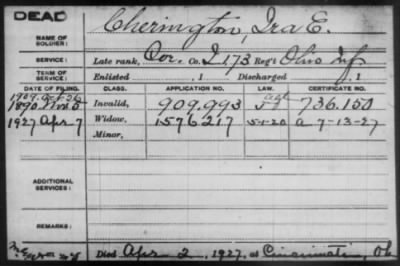 DEAD
NAME OF SOLDIER: Cherington, Ira E.
SERVICE: Late rank, Cor. Co. I 173 Reg't Ohio Inf
TERM OF SERVICE: Enlisted , 1 Discharged , 1
DATE OF FILING. CLASS. APPLICATION NO. LAW. CERTIFICATE NO.
1890 Nov 5 Invalid, 909.993 736.150
1927 Apr 7 Widow, 1576217 5-1-20 a 7-13-27
Minor,
ADDITIONAL SERVICES:
REMARKS:
Died Apr 2, 1927, at Cincinnati, Oh